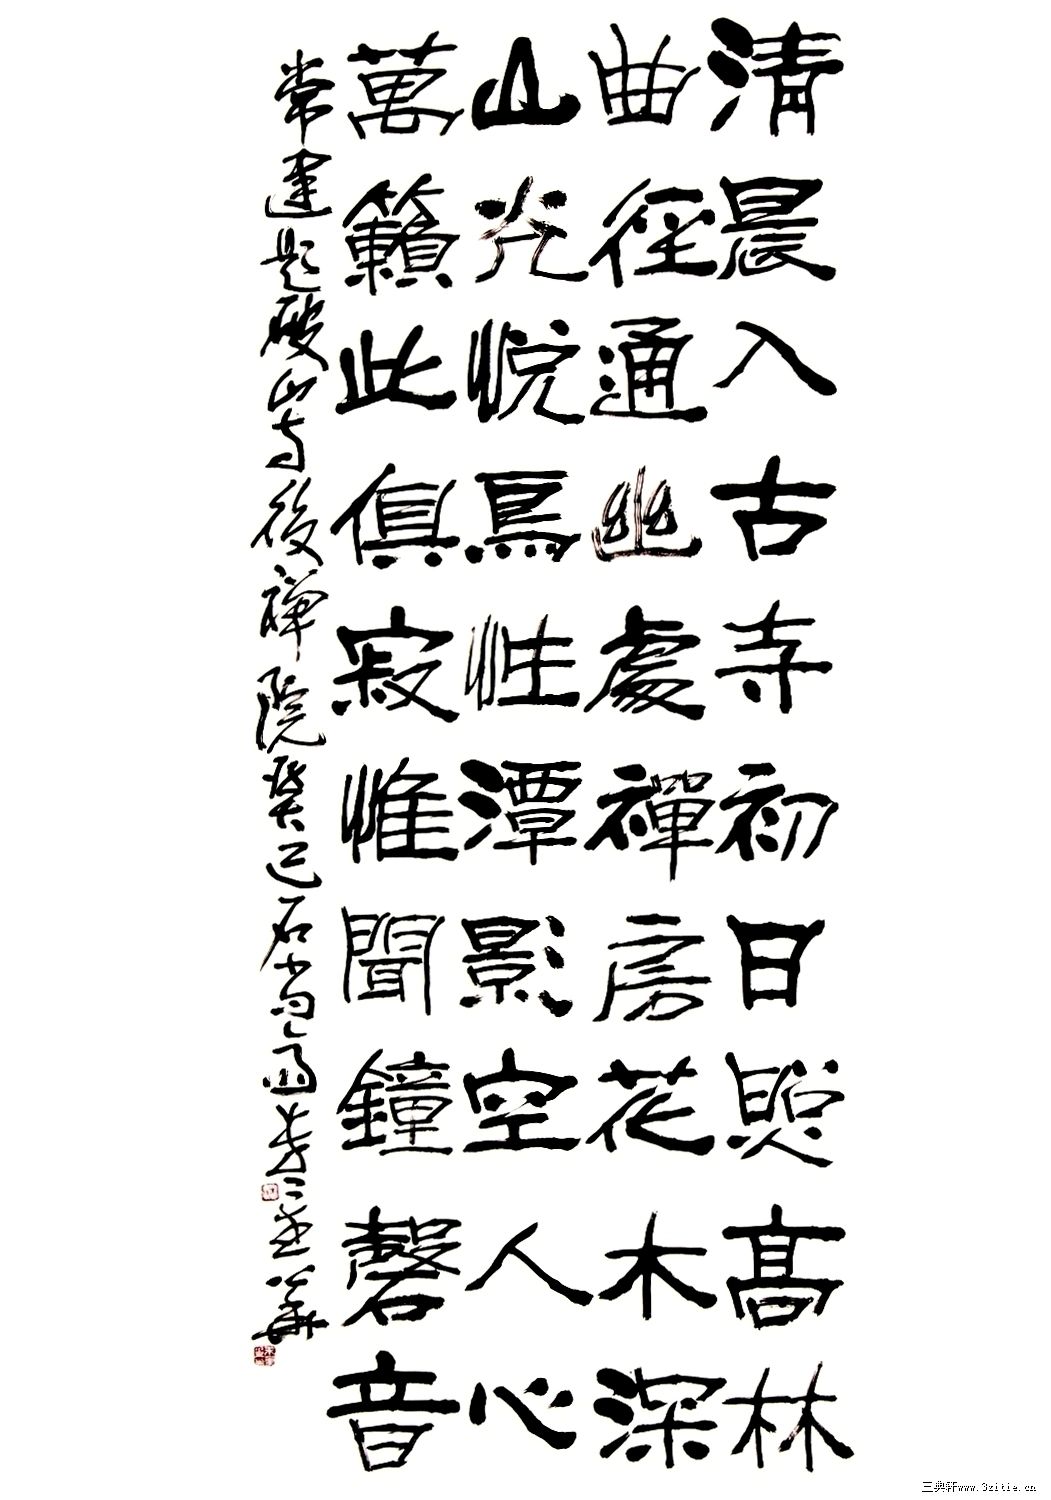 清晨入古寺初日照高林
曲徑通幽處禪房花木深
山光悅鳥性潭影空人心
萬籟此俱寂惟聞鐘磬音
常建題破山寺後禪院癸巳石
三典轩www.3zitie.cn